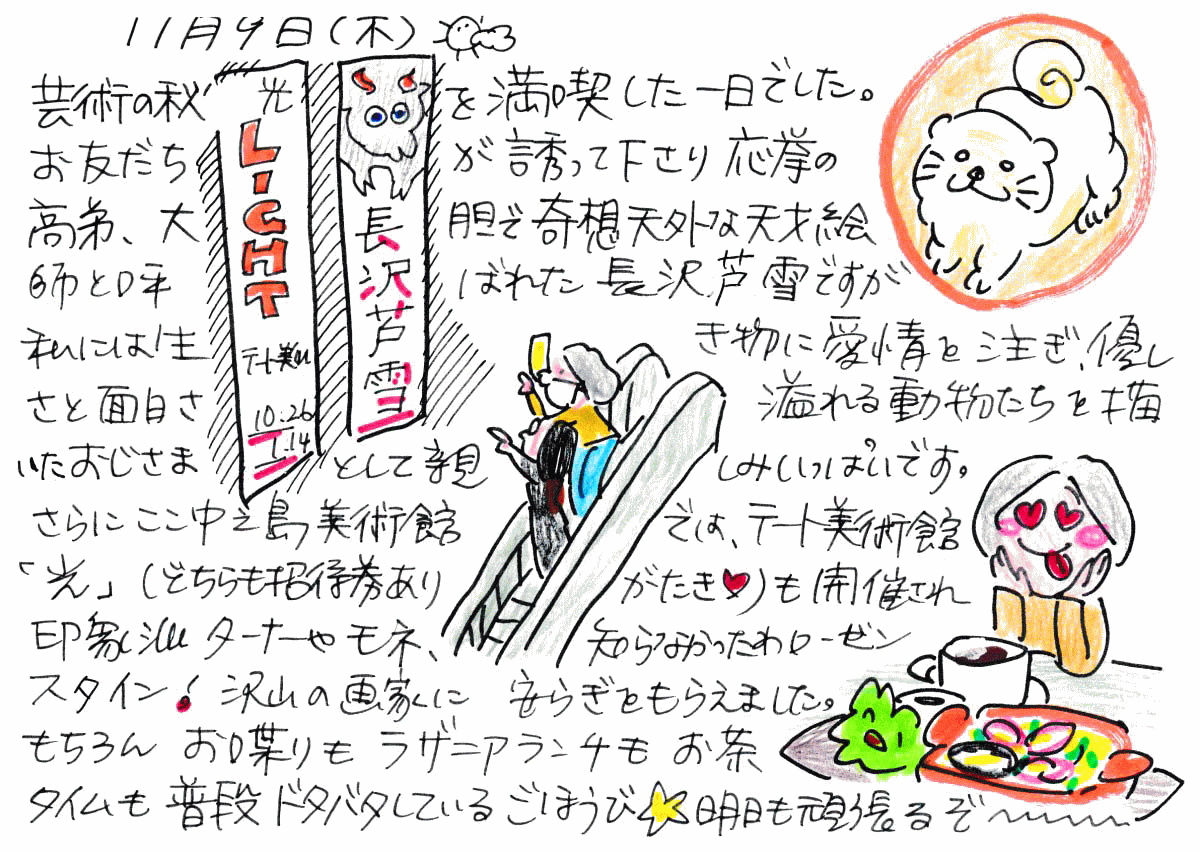 11月9日(木)
芸術の秋を満喫した一日でした。
お友だちが誘って下さり応挙の
高弟、大胆で奇想天外な天才絵
師と呼ばれた長沢芦雪ですが
私には生き物に愛情を注ぎ、優し
さと面白さ溢れる動物たちを描
いたおじさまとして親しみいっぱいです。
さらにここ中之島美術館では、テート美術館
「光」(どちらも招待券ありがたき♥)も開催され
印象派ターナーやモネ、知らなかったわローゼン
スタイン!沢山の画家に安らぎをもらえました。
もちろんお喋りもラザニアランチもお茶
タイムも普段ドタバタしているごほうび☆明日も頑張るぞ〜
光
LIGHT
テート美術
10.26
1.14
長沢芦雪